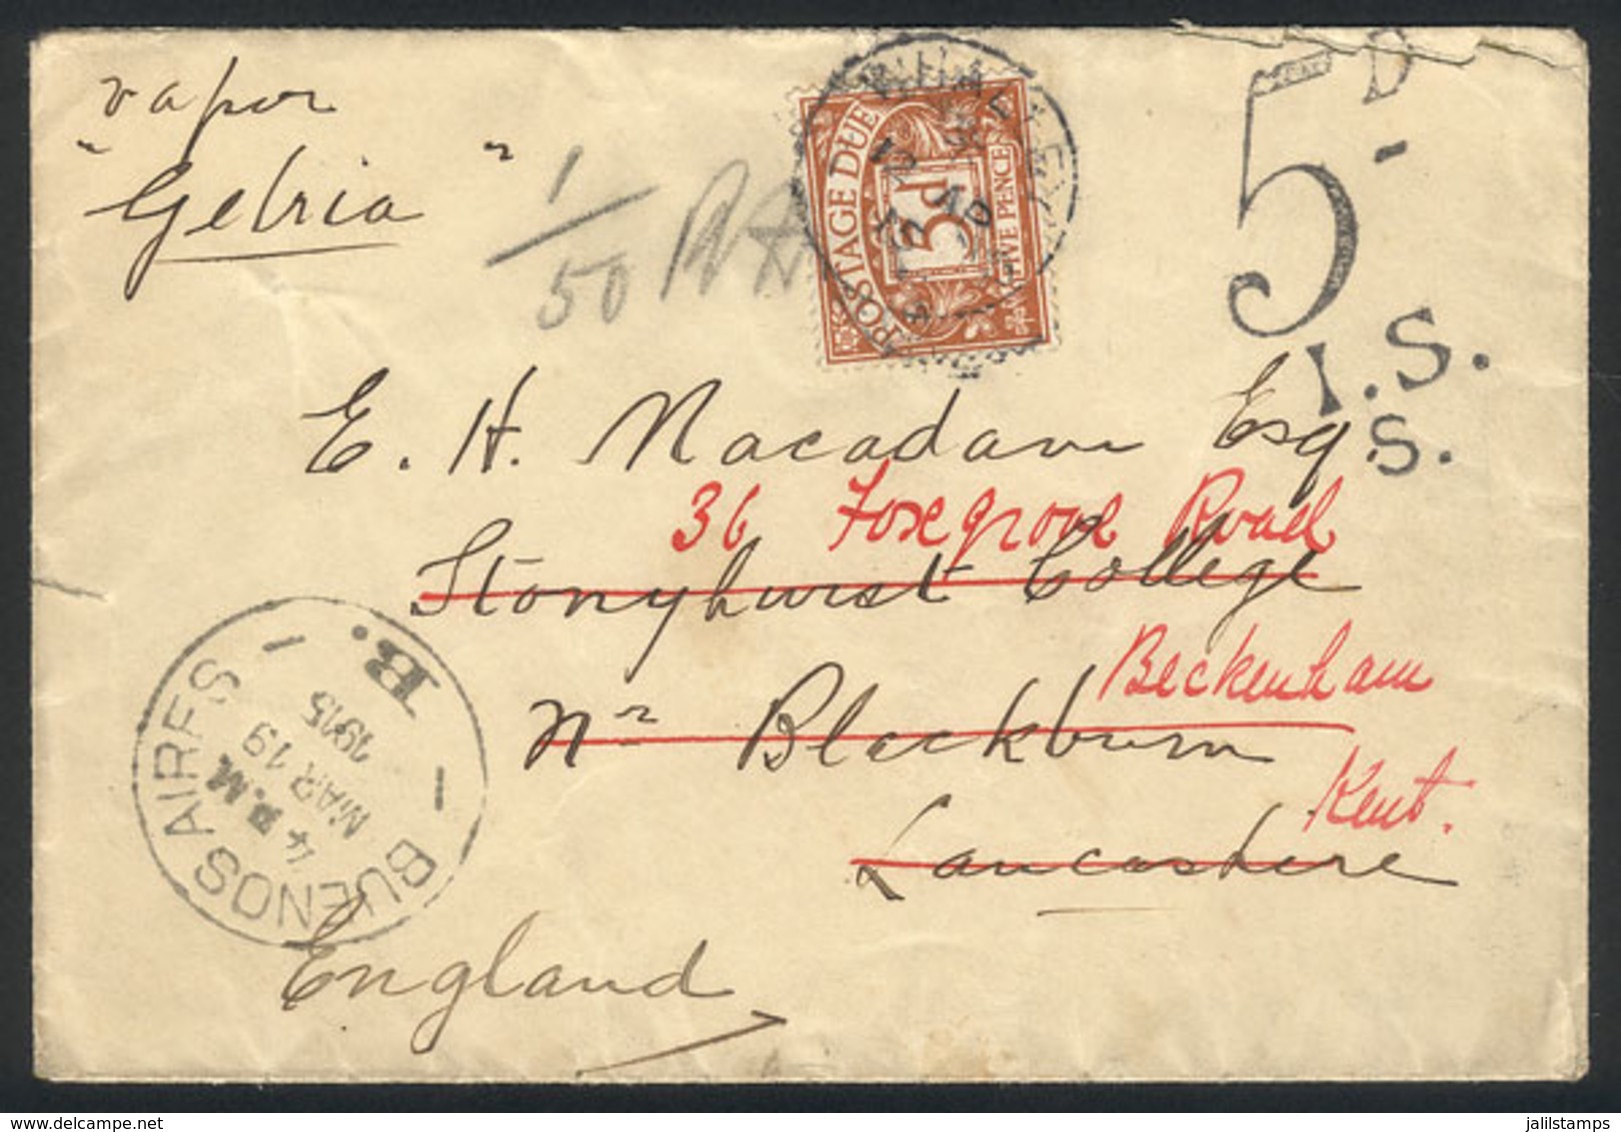 vapor
"Gelria"
1/50
POSTAGE DUE
5d
FIVE PENCE
WHALLEY
AP
15
5D
-
I.S.
S.
E. H. Macadam Esq
36 Foxgrove Road
Stonyhurst College
Beckenham
Nr Blackburn
Kent.
Lancashire
England
BUENOS AIRES
4 P.M.
MAR 19
1915
B.
jalilstamps